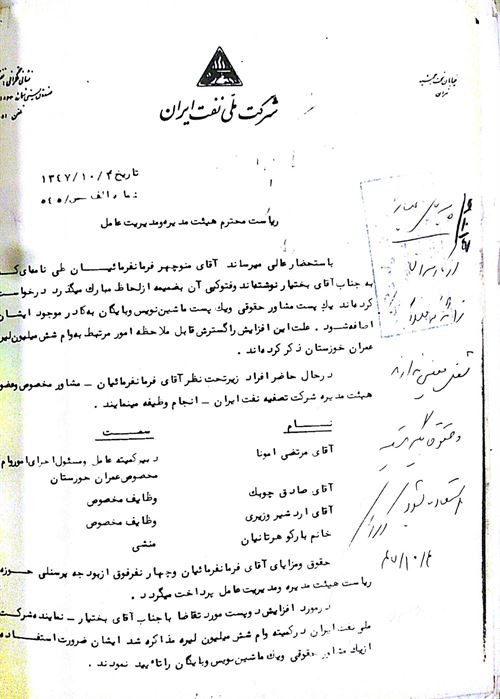 خیابان تخت جمشید
تهران
شرکت ملی نفت ایران
تاریخ ۱۳۴۷/۱۰/۴
شماره الف س/۵۴۵
ریاست محترم هیئت مدیره و مدیریت عامل
باستحضار عالی میرساند آقای منوچهر فرمانفرمائیان طی نامه‌ای که
به جناب آقای بختیار نوشته‌اند و فتوکپی آن بضمیمه از لحاظ مبارک میگذرد درخواست
کرده‌اند یک پست مشاور حقوقی ویک پست ماشین‌نویس وبایگان به‌کادر موجود ایشان
اضافه‌شود . علت این افزایش را گسترش قابل ملاحظه امور مرتبط به‌وام شش میلیون‌لیره
عمران خوزستان ذکر کرده‌اند .
درحال حاضر افراد زیرتحت نظر آقای فرمانفرمائیان – مشاور مخصوص وعضو
هیئت مدیره شرکت تصفیه نفت ایران – انجام وظیفه مینمایند .
نــــام سمـــت
آقای مرتضی امونا دبیرکمیته عامل ومسئول‌اجرای‌اموروام
مخصوص‌عمران خوزستان
آقای صادق چوبک وظایف مخصوص
آقای اردشیر وزیری وظایف مخصوص
خانم بارکو هرتانیان منشی
حقوق ومزایای آقای فرمانفرمائیان وچهار نفرفوق ازبودجه پرسنلی حوزه
ریاست هیئت مدیره ومدیریت عامل پرداخت میگردد .
درمورد افزایش دوپست مورد تقاضا با جناب آقای بختیار – نماینده‌شرکت
ملی نفت ایران درکمیته وام شش میلیون لیره مذاکره شد ایشان ضرورت استفاده
ازیک مشاور حقوقی ویک ماشین‌نویس وبایگان راتائید نمودند .
۴۷/۱۰/۴